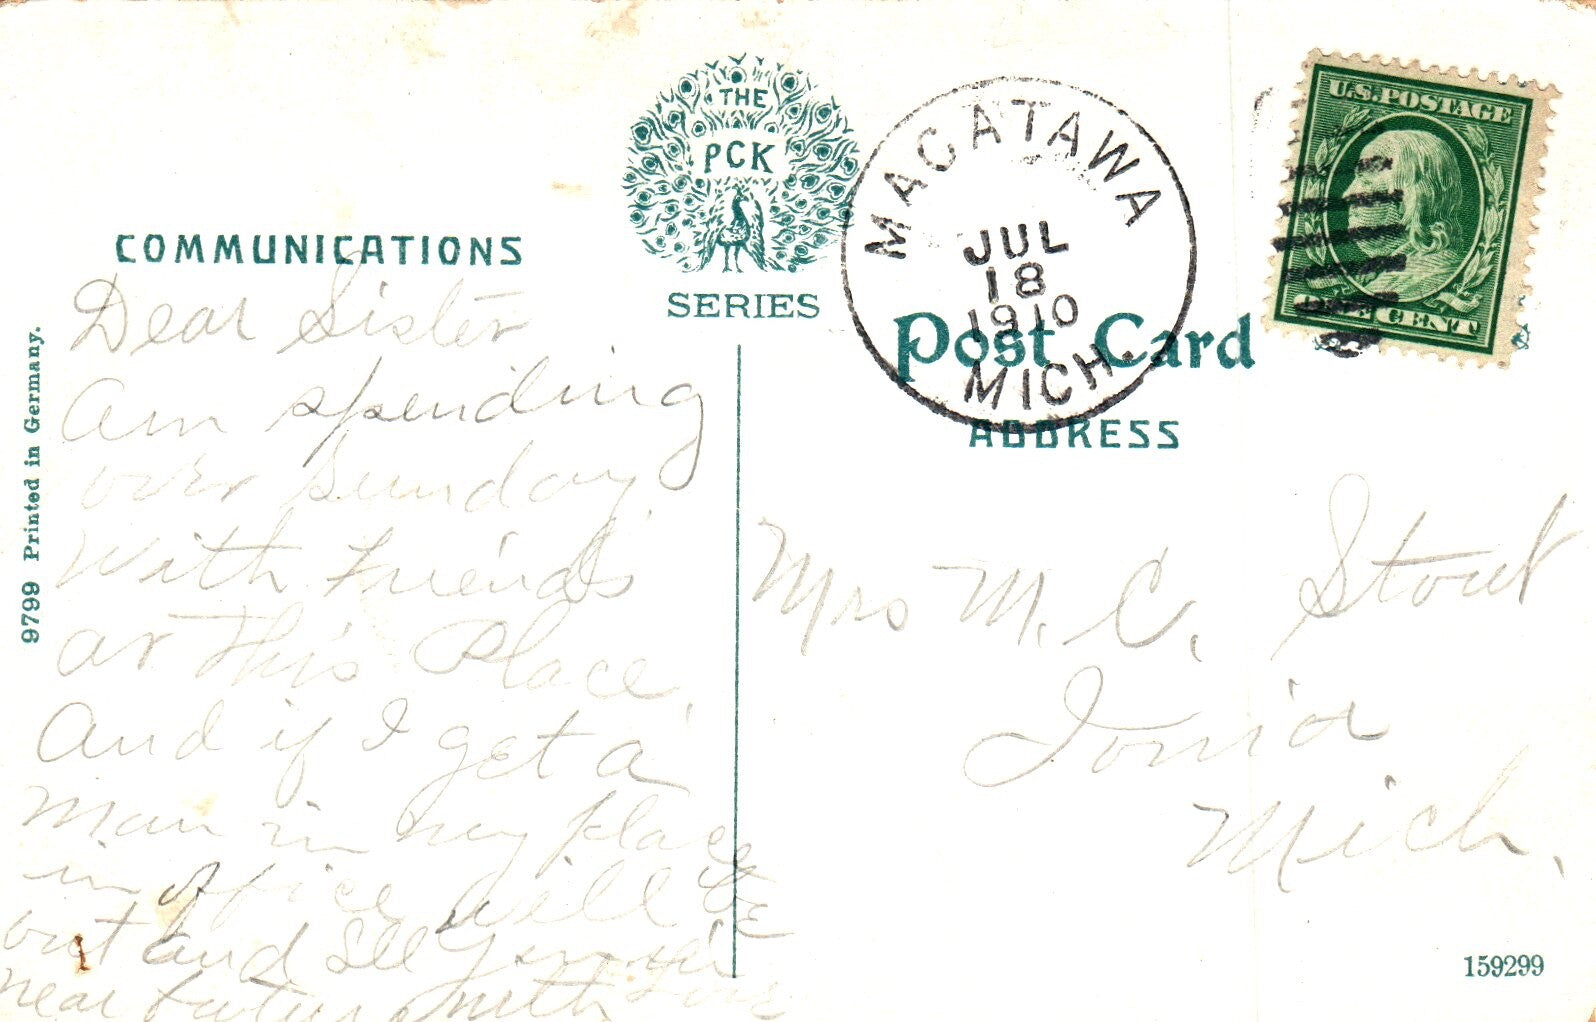 THE
PCK
SERIES
COMMUNICATIONS
MACATAWA
JUL
18
1910
MICH.
U.S. POSTAGE
CENT
Post Card
ADDRESS
9799 Printed in Germany.
Dear Sister
Am spending
over Sunday
With Friends
at This Place,
And if I get a
Man in my place
in office will be
out and see you in
near future with Love
Mrs M. C. Stout
Ionia
Mich.
159299